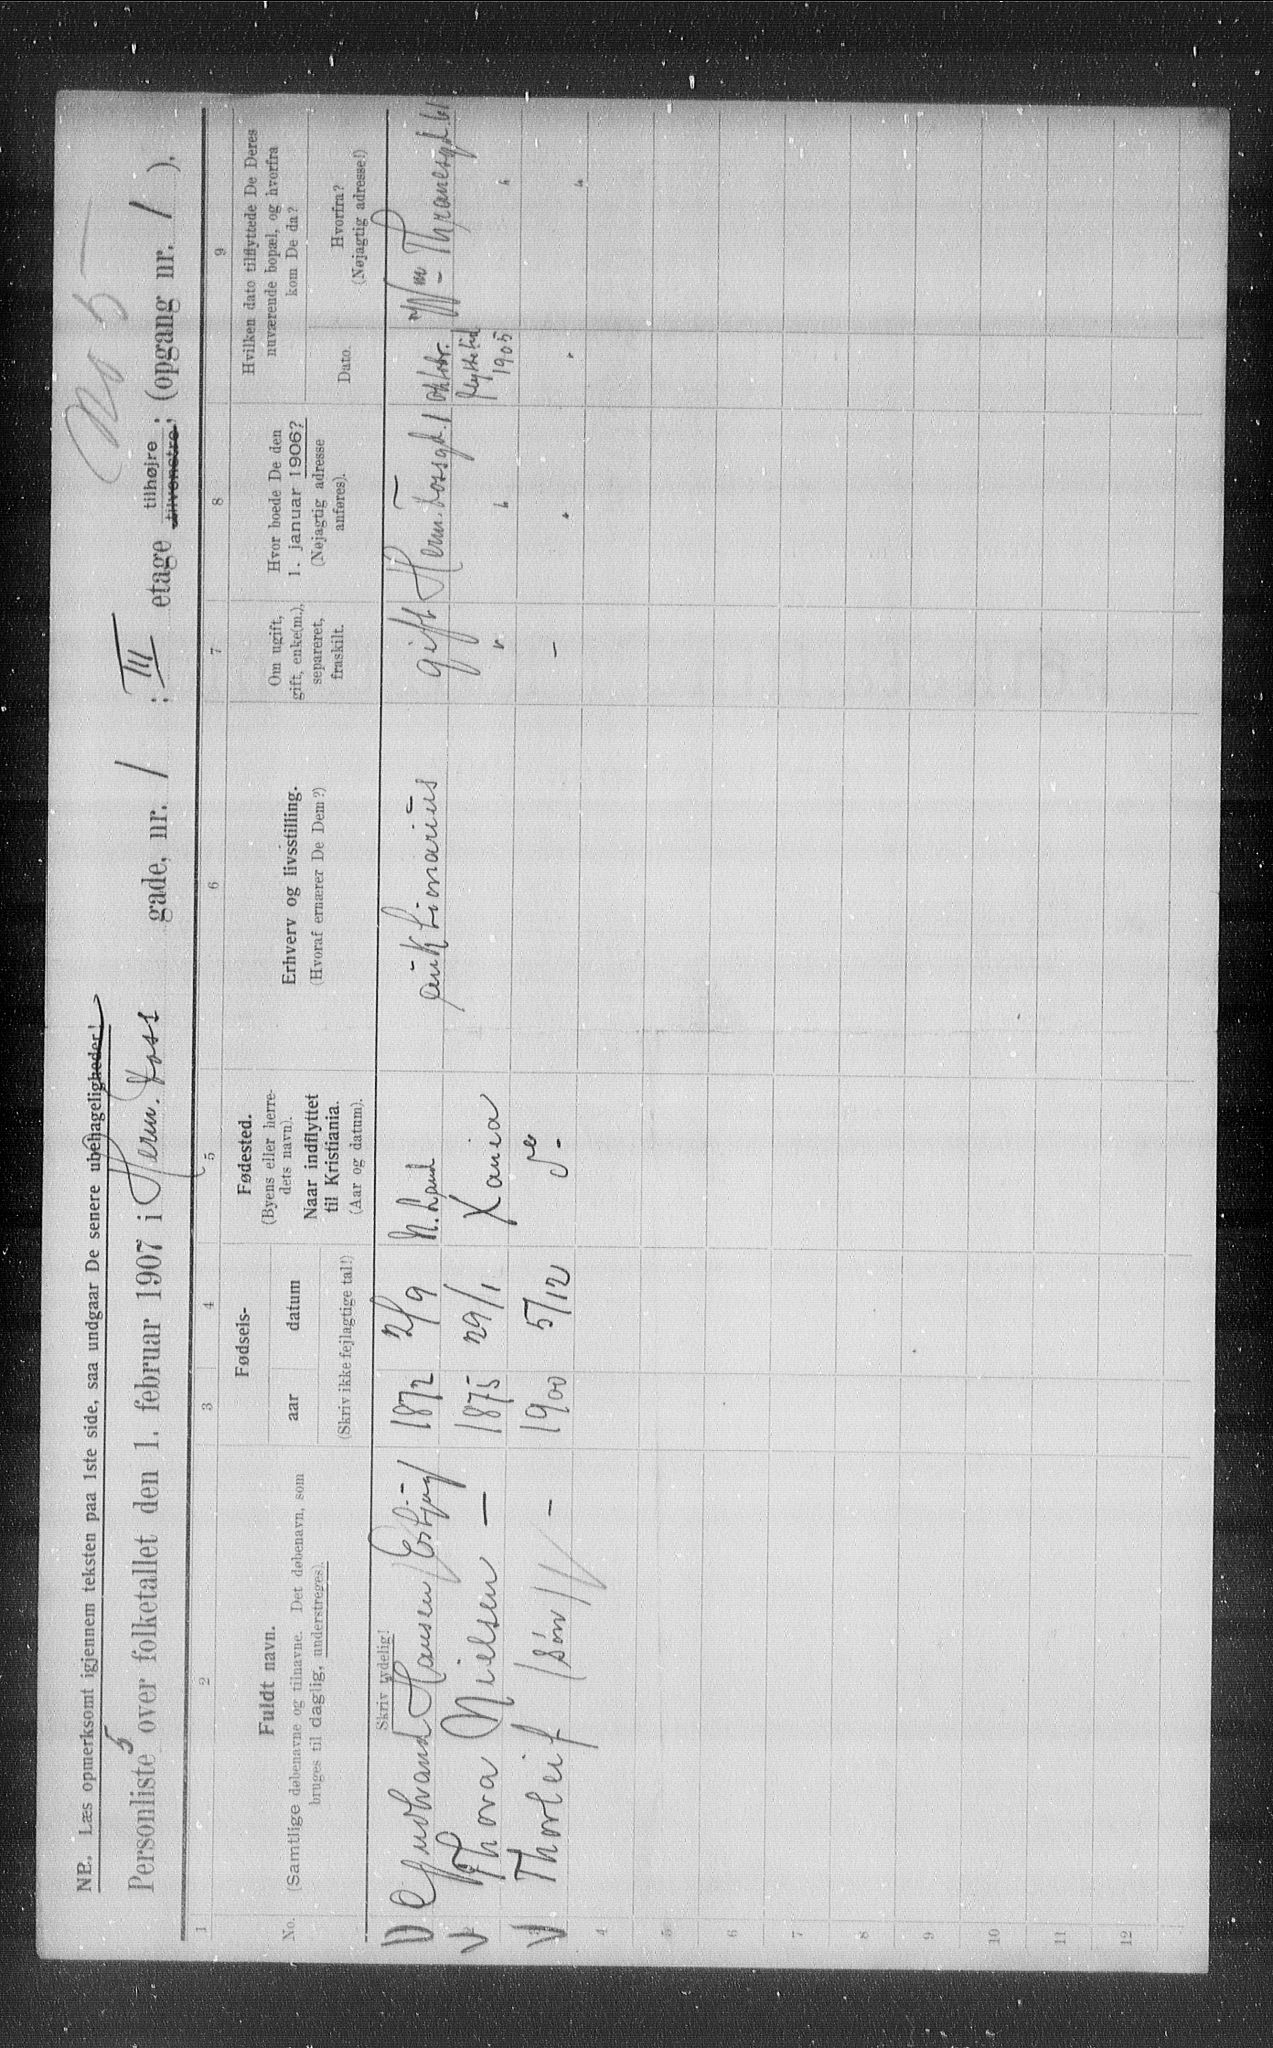 NB. Læs opmerksomt igjennem teksten paa 1ste side, saa undgaar De senere ubehageligheder!
No 5
Personliste 5 over folketallet den 1. februar 1907 i Herm. Foss gade, nr. 1 ; III etage tilhøjre ; (opgang nr. 1 ).
tilvenstre;
1 2 3 4 5 6 7 8 9
No.
Fuldt navn.
(Samtlige døbenavne og tilnavne. Det døbenavn, som
bruges til daglig, understreges).
Skriv tydelig!
Fødsels-
aar datum
(Skriv ikke fejlagtige tal!)
Fødested.
(Byens eller herre-
dets navn).
Naar indflyttet
til Kristiania.
(Aar og datum).
Erhverv og livsstilling.
(Hvoraf ernærer De Dem?)
Om ugift,
gift, enke(m.),
separeret,
fraskilt.
Hvor boede De den
1. januar 1906?
(Nøjagtig adresse
anføres).
Hvilken dato tilflyttede De Deres
nuværende bopæl, og hvorfra
kom De da?
Dato.
Hvorfra?
(Nøjagtig adresse!)
1 Gudbrand Hansen Esbjug 1872 2/9 N. Land auktionarius gift Herm. Fossgd. 1 oktobr. flyttetid 1905 Wm Thranesgd. 61
2 Thora Nielsen — 1875 29/1 Xania " " "
3 Thorleif søn — 1900 5/12 do - — " " "
4
5
6
7
8
9
10
11
12